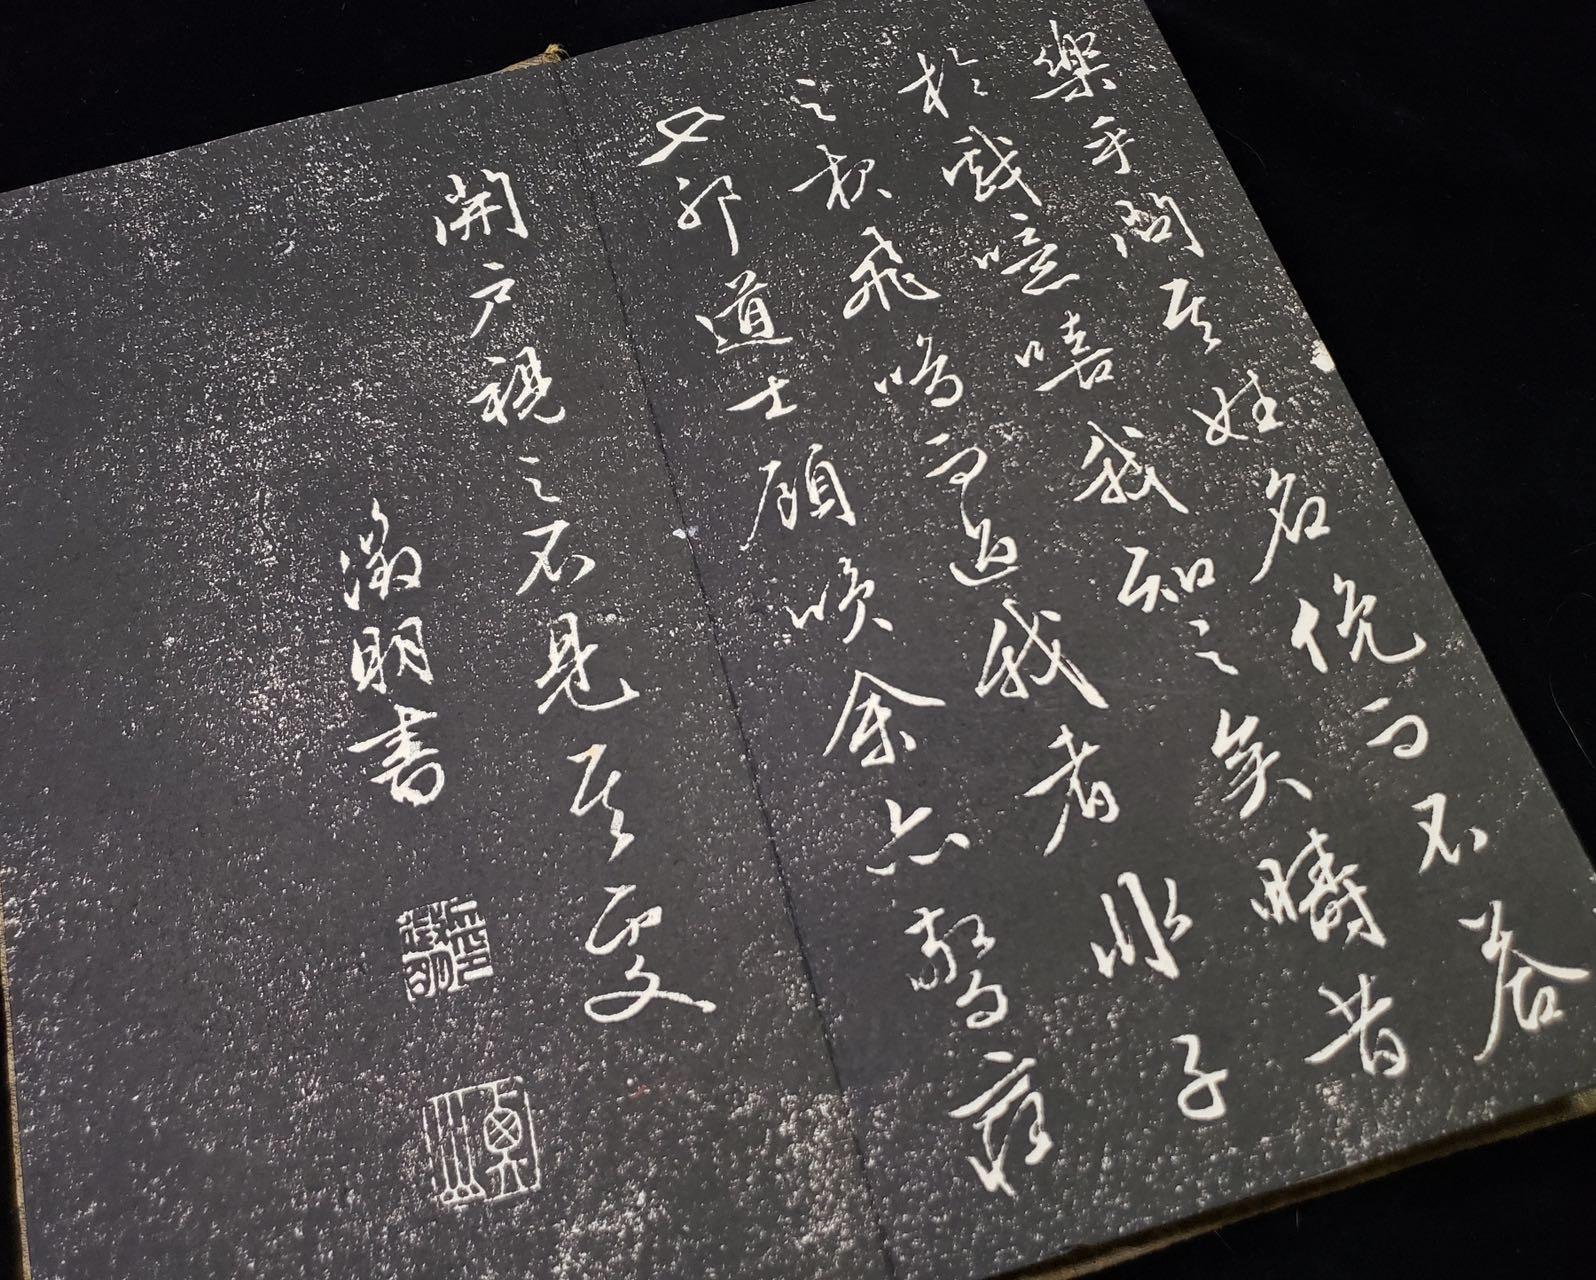 樂乎問其姓名俛而不答
於戲噫嘻我知之矣疇昔
之夜飛鳴而過我者非子
也邪道士顧咲余亦驚寤
開戶視之不見其處
徵明書